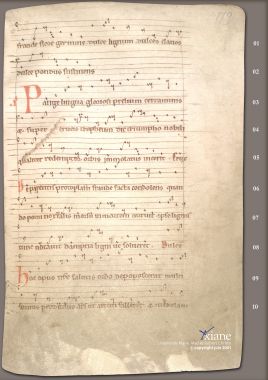 fronde flore germine dulce lignum dulces clavos
dulce pondus sustinens
Pange lingua gloriosi prelium certaminis
& super crucis tropheum dic triumphum nobilem
qualiter redemptor orbis immolatus vicerit
De parentis protoplasti fraude facta condolens quan
do pomi noxialis morsu in mortem corruit ipse lignum
tunc notavit dampna ligni ut solveret Dulce
Hoc opus nostre salutis ordo depoposcerat multi
formis proditoris ars ut artem falleret &
119
01
02
03
04
05
06
07
08
09
10
xiane